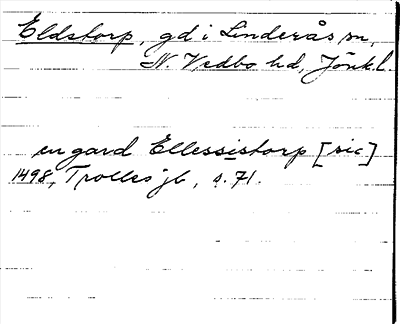 Eldstorp, gd i Linderås sn,
N. Vedbo hd, Jönk.l.
en gard Ellessistorp [sic]
1498, Trolles jb, s. 71.